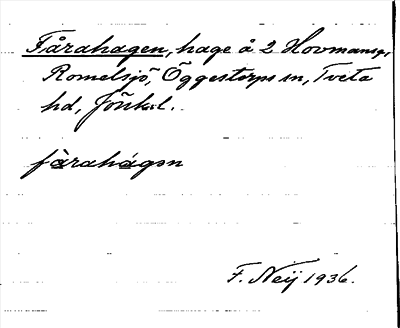 Fårahagen, hage å 2 Hovmansg,
Romelsjö, Öggestorps sn, Tveta
hd, Jönk.l.
fårahágən
F. Neij 1936.